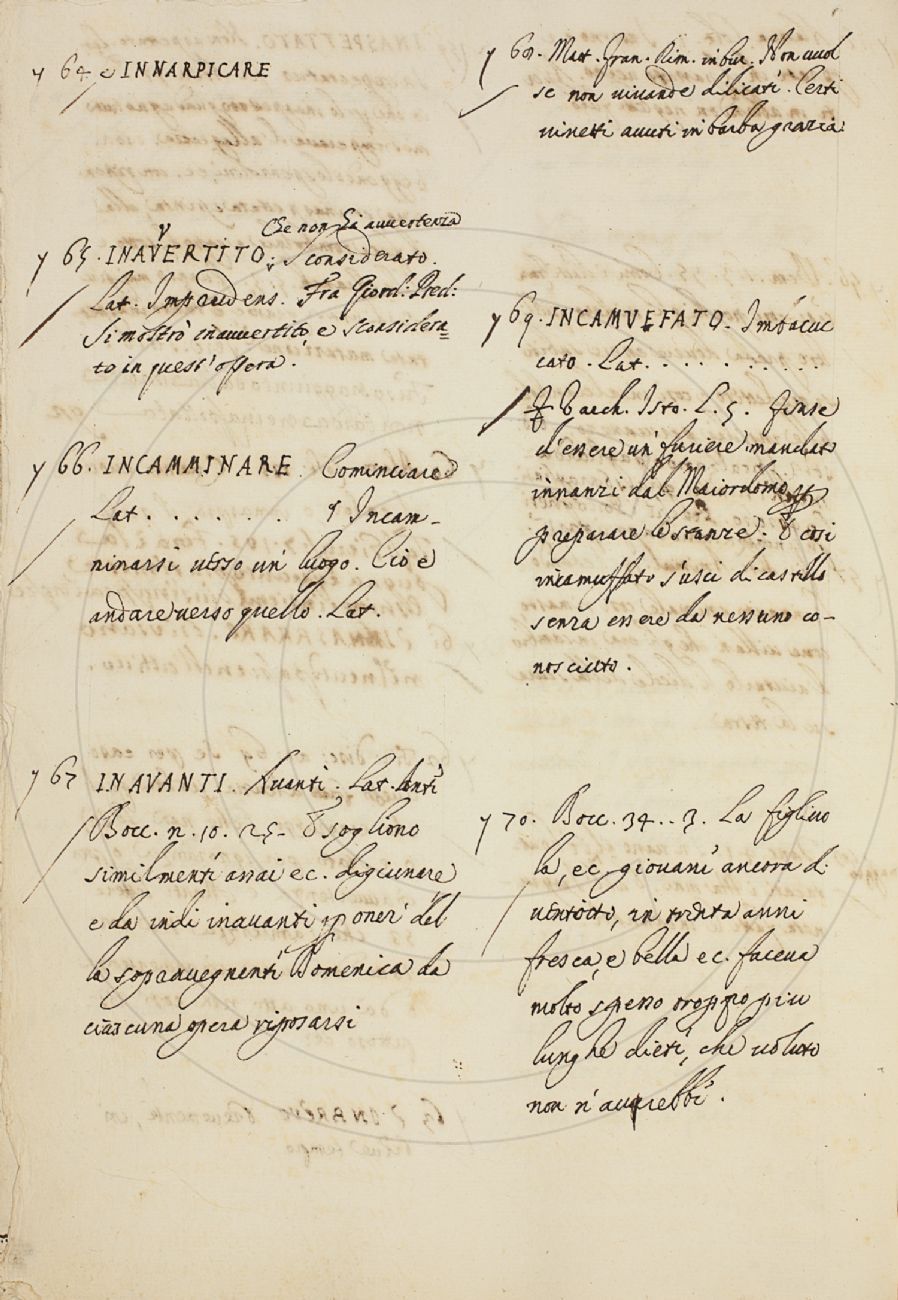 y 64. e INNARPICARE
y 65. INAVVERTITO. Sconsiderato.
Che non hà avvertenza
Lat. Imprudens. Fra Giord: Pred:
Si mostrò inavvertito, e sconsidera=
to in quest' opera.
y 66. INCAMMINARE. Cominciare
Lat . . . . . . . ¶ Incam-
ninarsi verso un' luogo. Ciò è
andare verso quello. Lat.
y 67 INAVANTI. Avanti. Lat. Ante
Bocc. n. 10. 25. E sogliono
similmente assai ec. digiunare
e da indi inavanti p oner del
la sopravvegnente Domenica da
ciascuna opera riposarsi
y 68. Matt. Fran. Rim. in bur. Non vuol
se non vivande dilicate. Certi
vinetti avuti in barba grazia
y 69. INCAMVFATO. Imbacuc
cato. Lat. . . . . . . . . .
Varch. Isto. L. 5. finse
d' essere un' furiere mandato
innanzi dal Maiordomo
preparare le stanze. E così
incamuffato s' uscì di castello
senza essere da nessuno co-
nosciuto.
y 70. Bocc. 34. . 3. La figliuo
la, ec giovane ancora di
ventotto, in trenta anni
fresca, e bella ec. faceva
molto spesso troppo piu
lunghe diete, che voluto
non n' avrebbe.